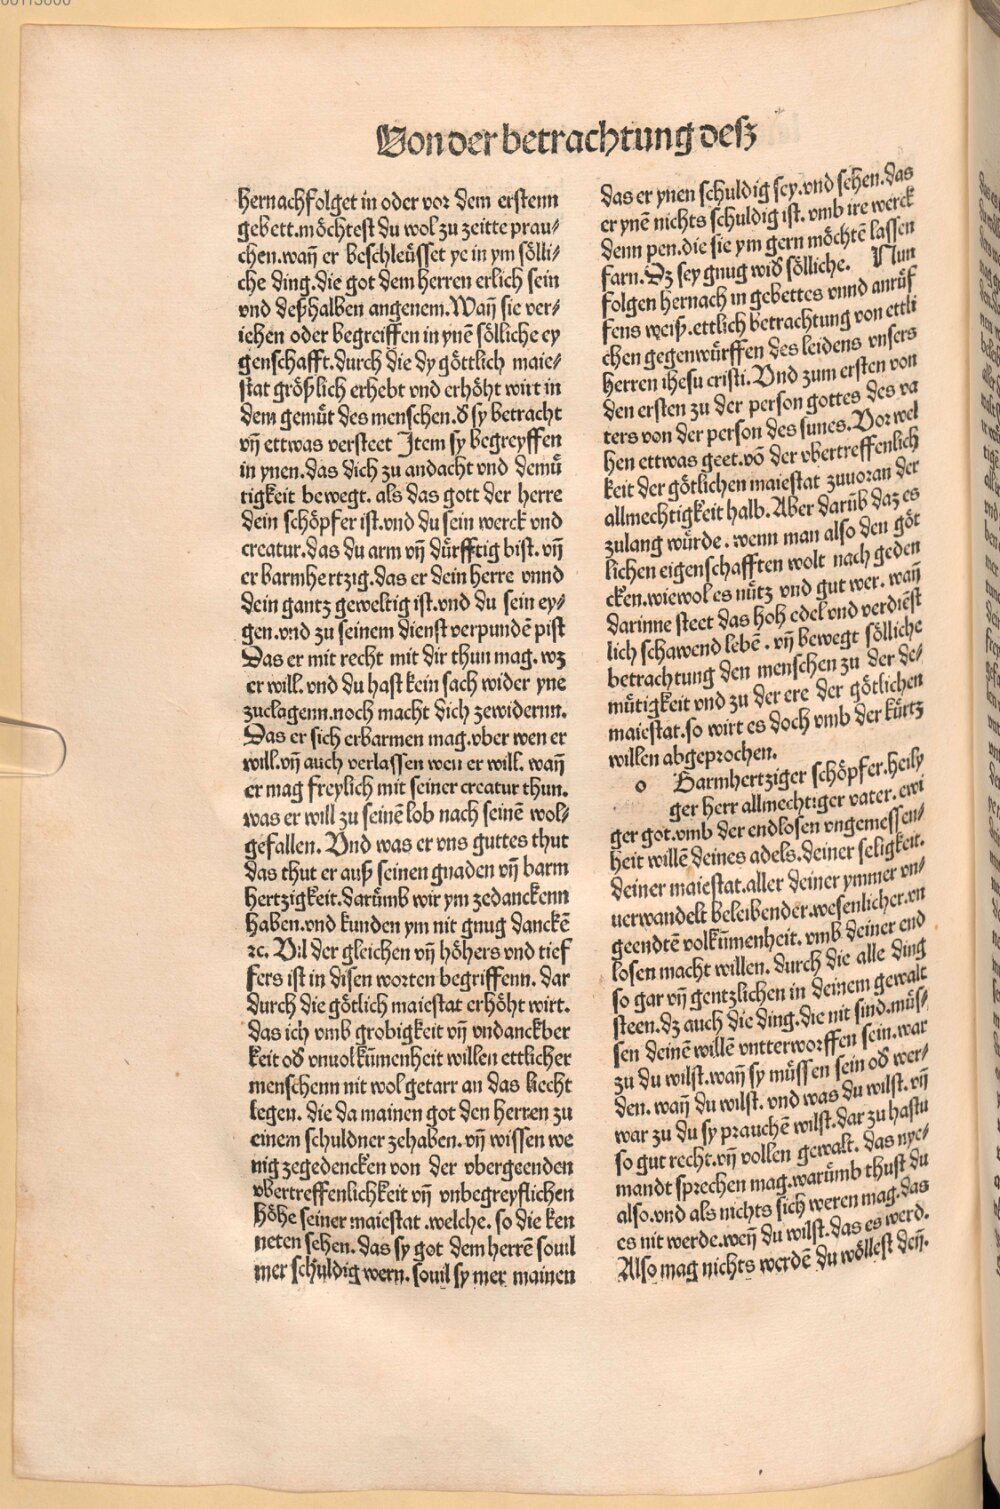 Von der betrachtung desz
hernachfolget in oder vor dem erstenn
gebett.möchtest du wol zu zeitte prau⸗
chen.wañ er beschleüsset ye in ym sölli⸗
che ding.die got dem herren erlich sein
vnd deßhalben angenem.Wañ sie ver⸗
iehen oder begreiffen in ynē sölliche ey
genschafft.durch die dy göttlich maie⸗
stat größlich erhebt vnd erhöht wirt in
dem gemüt des menschen.d̕ sy betracht
vñ ettwas versteet Jtem sy begreyffen
in ynen.das dich zu andacht vnd demü
tigkeit bewegt. als das gott der herre
dein schöpfer ist.vnd du sein werck vnd
creatur.das du arm vñ dürfftig bist. vñ
er barmhertzig.das er dein herre vnnd
dein gantz geweltig ist.vnd du sein ey⸗
gen.vnd zu seinem dienst verpundē pist
Das er mit recht mit dir thun mag. wz
er will. vnd du hast kein sach wider yne
zuclagenn.noch macht dich zewidernn.
Das er sich erbarmen mag.vber wen er
will.vñ auch verlassen wen er will. wañ
er mag freylich mit seiner creatur thun.
was er will zu seinē lob nach seinē wol⸗
gefallen. Vnd was er vns guttes thut
das thut er auß seinen gnaden vñ barm
hertzigkeit.darümb wir ym zedanckenn
haben.vnd kunden ym nit gnug danckē
ꝛc. Vil der gleichen vñ höhers vnd tief
fers ist in disen worten begriffenn. dar
durch die götlich maiestat erhöht wirt.
das ich vmb grobigkeit vñ vndanckber
keit od̕ vnuolkūmenheit willen ettlicher
menschenn nit wol getarr an das liecht
legen. die da mainen got den herren zu
einem schuldner zehaben. vñ wissen we
nig zegedencken von der vbergeenden
vbertreffenlichkeit vñ vnbegreyflichen
höhe seiner maiestat .welche. so die ken
neten sehen. das sy got dem herrē souil
mer schuldig wern. souil sy mer mainen
das er ynen schuldig sey.vnd sehen.das
er ynē nichts schuldig ist. vmb ire werck
denn pen.die sie ym gern möchtē lassen
farn. Dz sey gnug wid̕ sölliche. Nun
folgen hernach in gebettes vnnd anrüf
fens weiß.ettlich betrachtung von ettli
chen gegenwürffen des leidens vnsers
herren ihesu cristi. Vnd zum ersten von
den ersten zu der person gottes des va
ters von der person des sunes. Vor wel
hen ettwas geet.vō der vbertreffenlich
keit der götlichen maiestat zuuoran der
allmechtigkeit halb. Aber darūb daz es
zulang würde. wenn man also den göt
lichen eigenschafften wolt nach geden
cken.wiewol es nütz vnd gut wer. wañ
darinne steet das hoh edel vnd verdiēst
lich schawend lebē . vñ bewegt sölliche
betrachtung den menschen zu der de⸗
mütigkeit vnd zu der ere der götlichen
maiestat.so wirt es doch vmb der kürtz
willen abgeprochen.
o Barmhertziger schöpfer.heily
ger herr allmechtiger vater. ewi
ger got.vmb der endlosen vngemessen⸗
heit willē deines adels.deiner seligkeit.
deiner maiestat.aller deiner ymmer vn⸗
uerwandelt beleibender.wesenlicher.vn
geendtē volkūmenheit. vmb deiner end
losen macht willen. durch die alle ding
so gar vñ gentzlichen in deinem gewalt
steen.dz auch die ding.die nit sind.müs⸗
sen deinē willē vntterworffen sein.war
zu du wilst.wañ sy müssen sein od̕ wer⸗
den. wañ du wilst. vnd was du wilst. vñ
war zu du sy prauchē wilst.dar zu hastu
so gut recht.vñ vollen gewalt. das nye⸗
mandt sprechen mag.warümb thust du
also.vnd als nichts sich weren mag.das
es nit werde.weñ du wilst.das es werd.
Also mag nichts werdē du wöllest deñ.